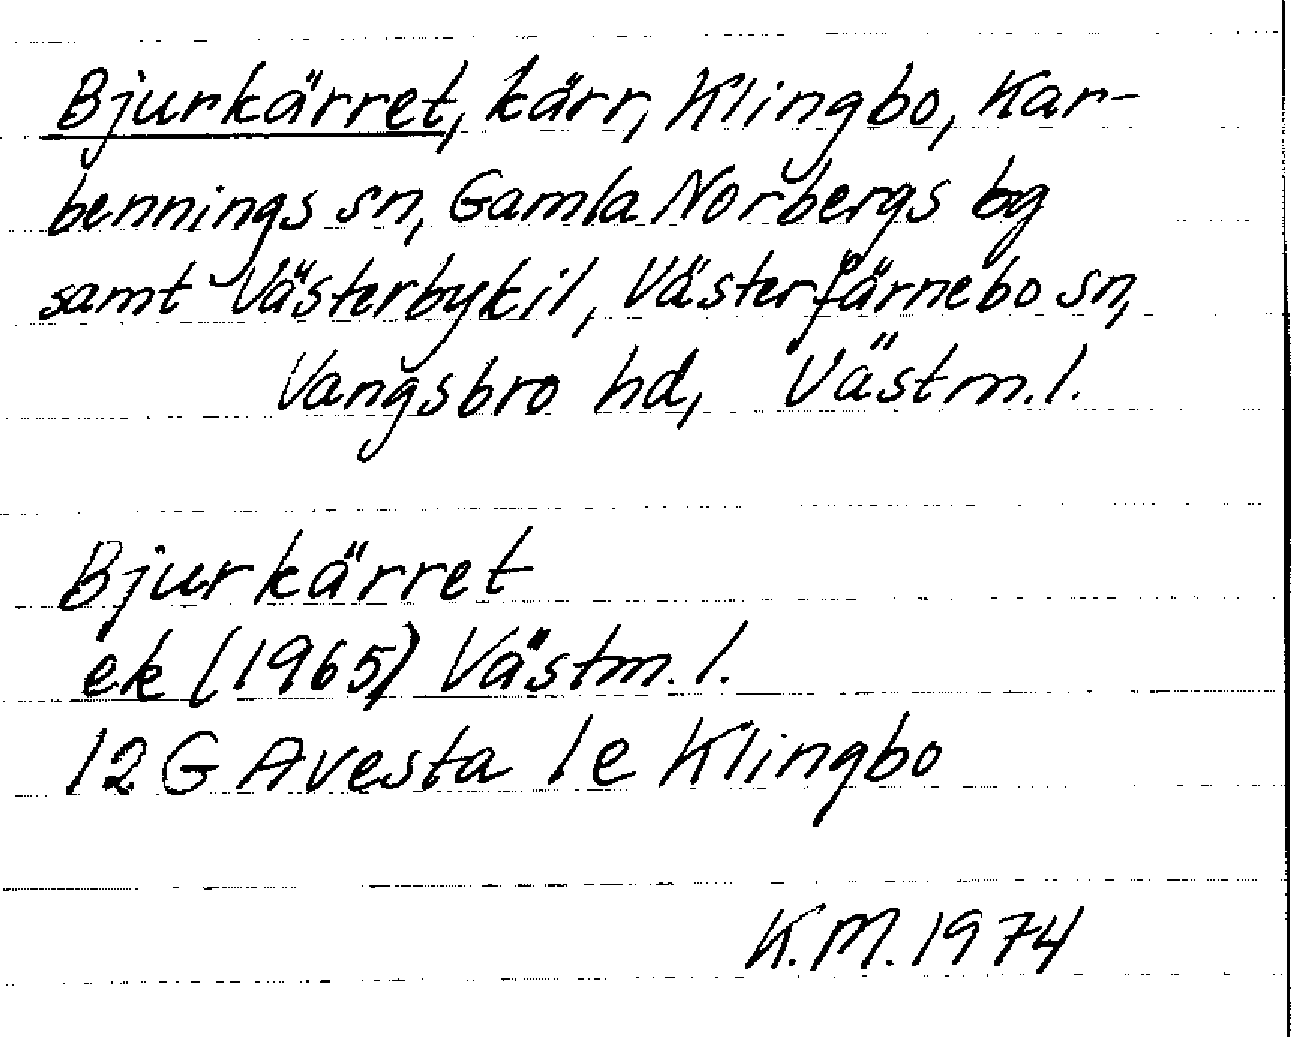 Bjurkärret, kärr, Klingbo, Kar-
bennings sn, Gamla Norbergs bg
samt Västerbykil, Västerfärnebo sn,
Vangsbro hd, Västm.l.
Bjurkärret
ek (1965) Västm.l.
12 G Avesta 1e Klingbo
K.M. 1974